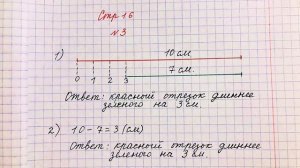 Стр 16
№3
1)
10 см
7 см.
0 1 2 3
Ответ: красный отрезок длиннее
зеленого на 3 см.
2) 10-7=3 (см)
Ответ: красный отрезок длиннее
зеленого на 3 см.